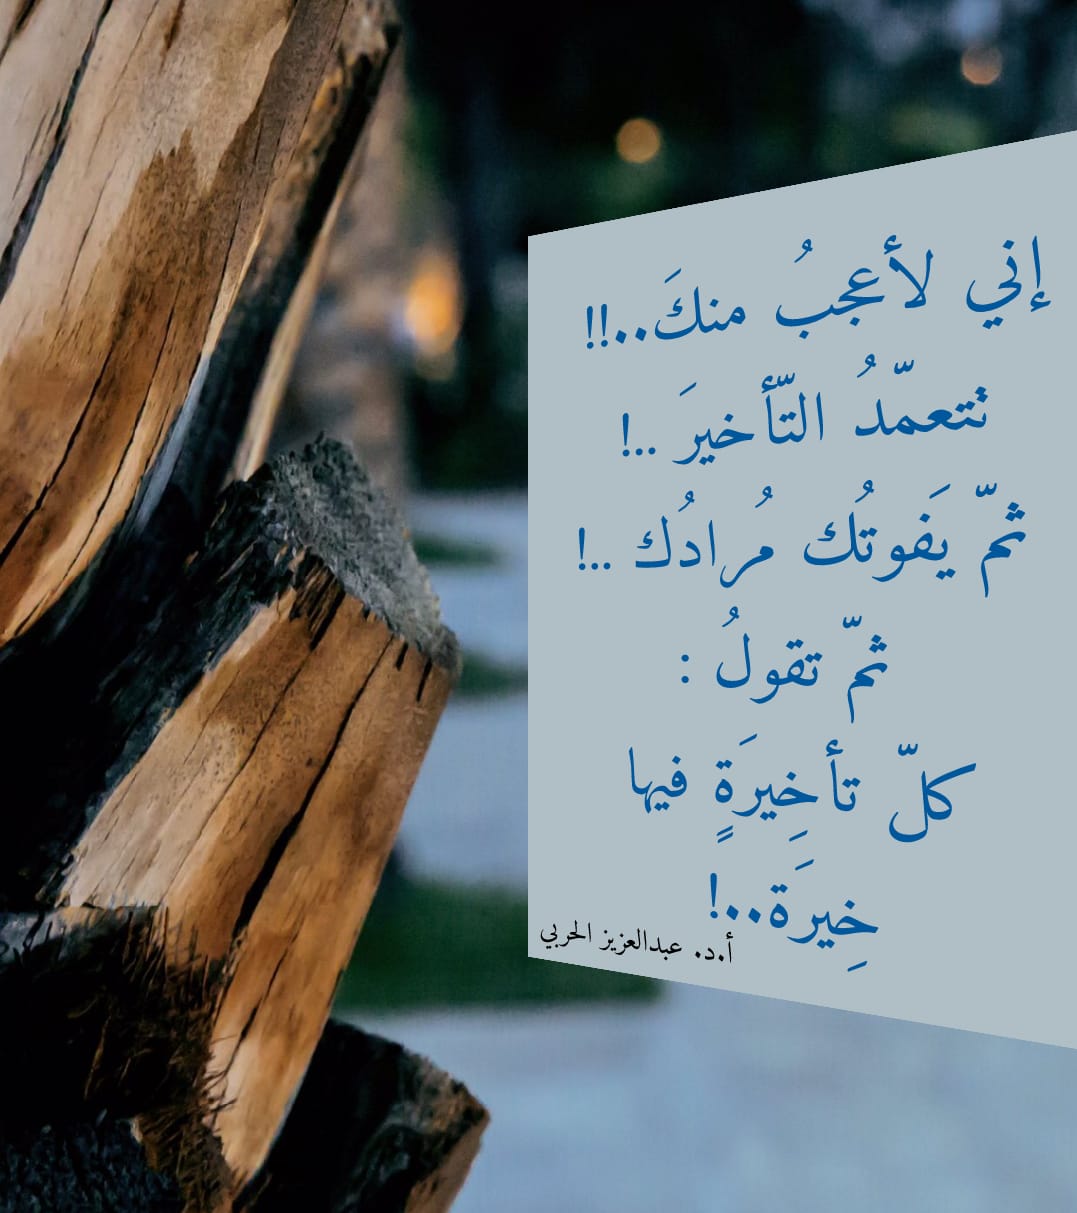 إني لأعجبُ منكَ..!!
تتعمّدُ التّأخيرَ ..!
ثمّ يَفوتُك مُرادُك ..!
ثمّ تقولُ :
كلّ تأخِيرَةٍ فيها
خِيرَة..!
أ.د. عبدالعزيز الحربي